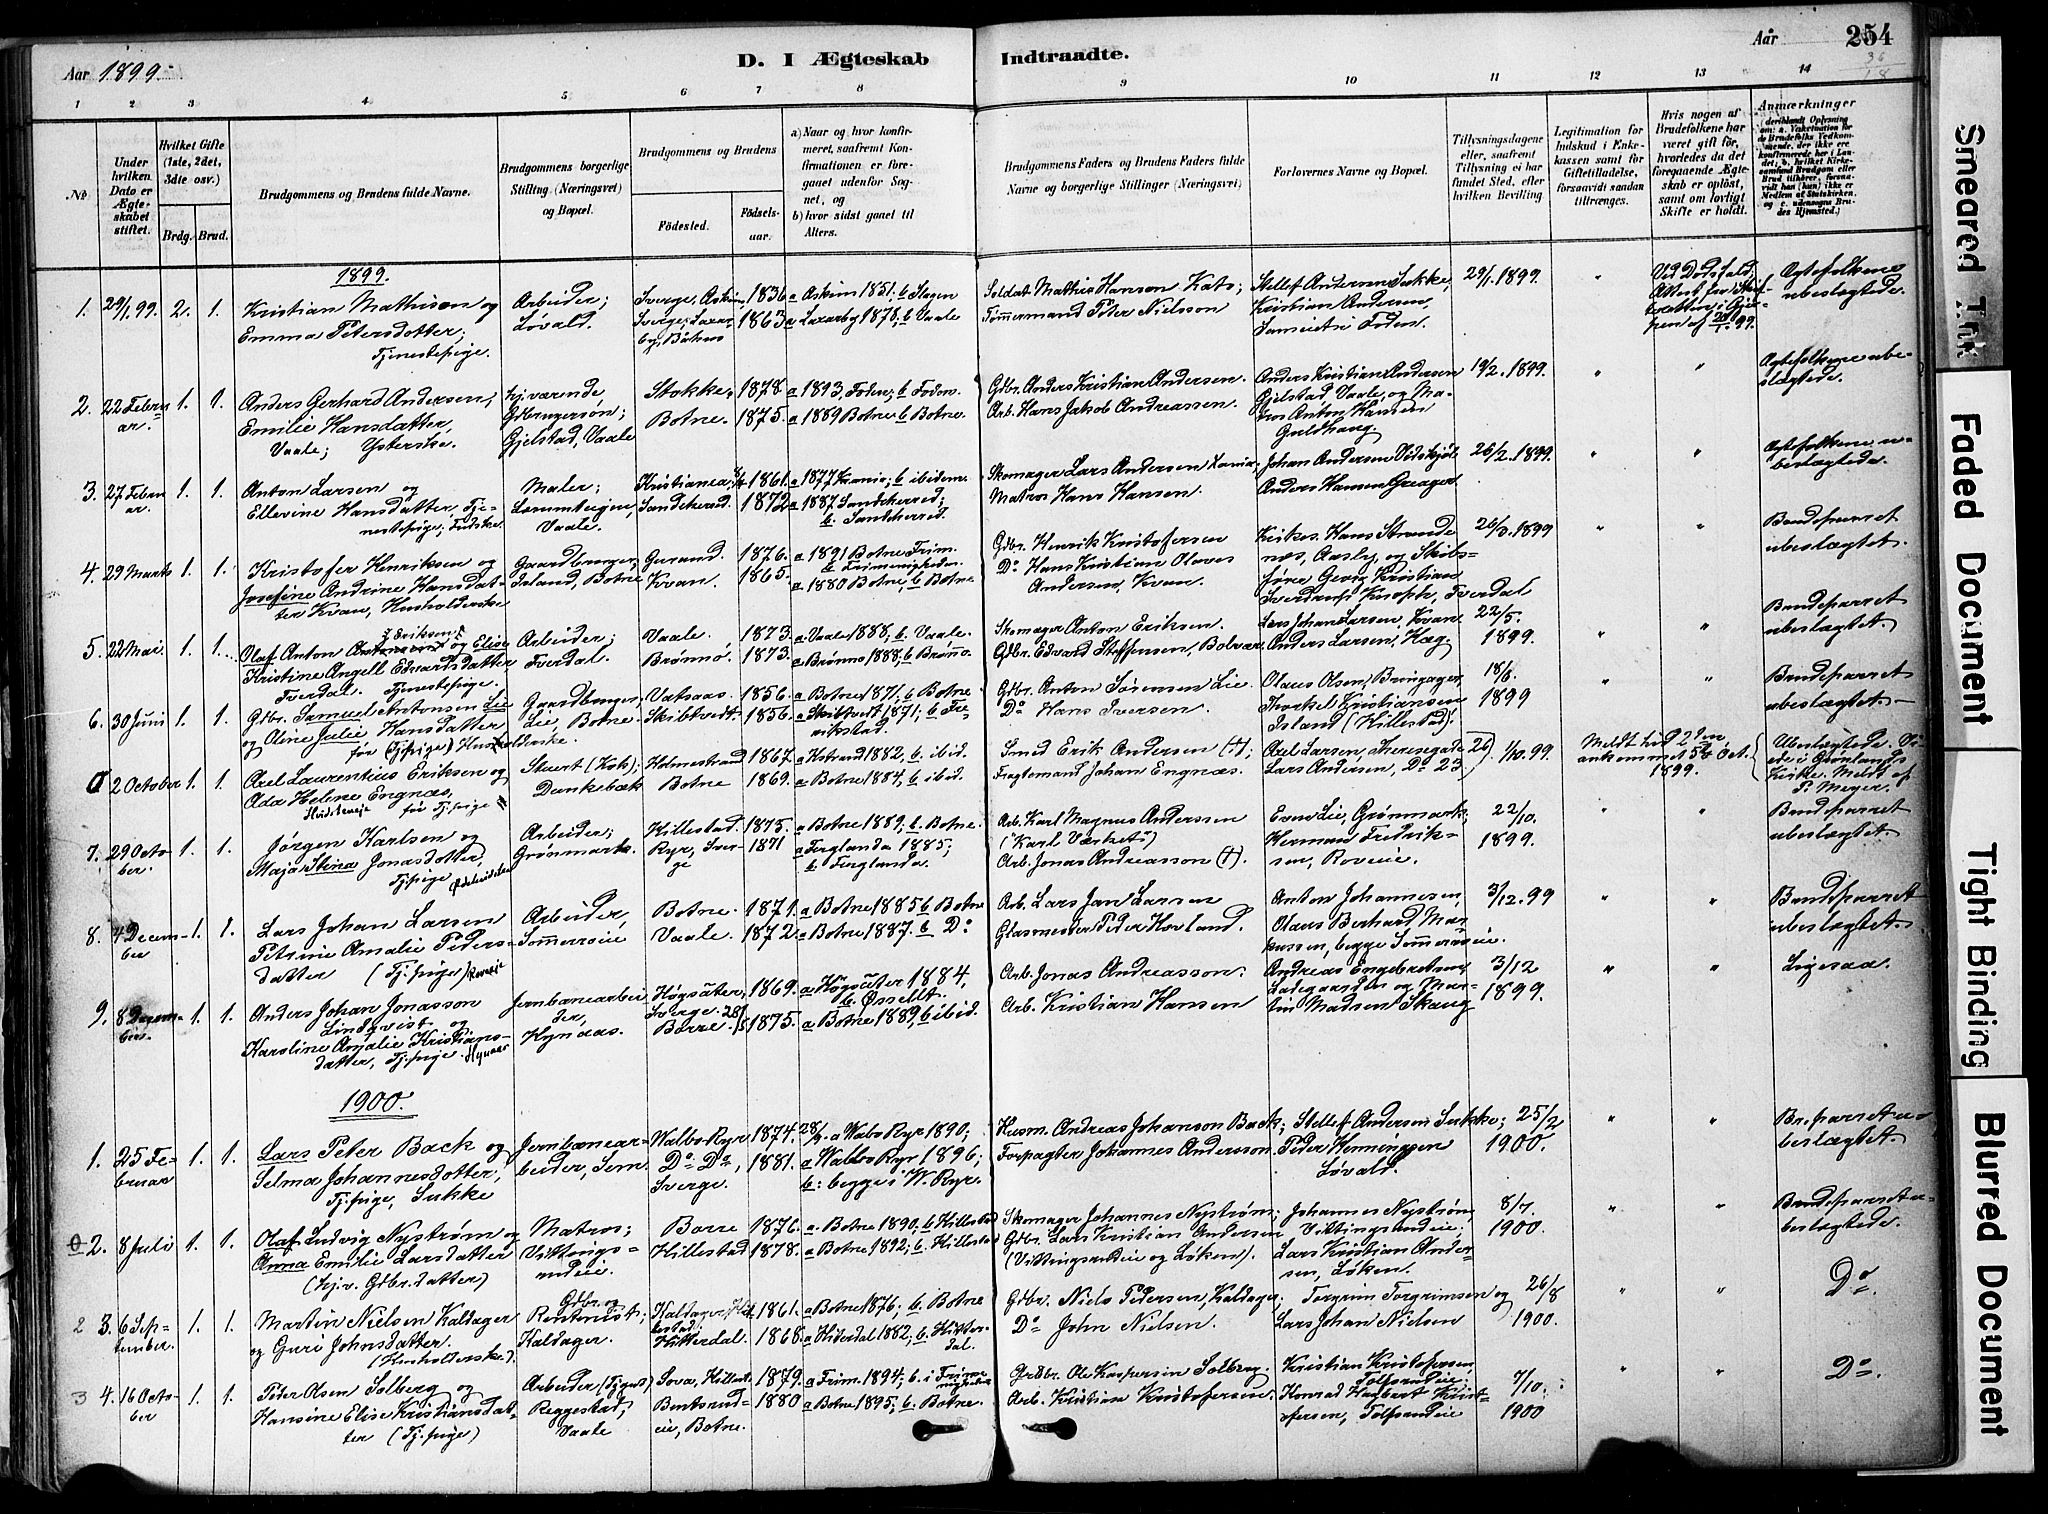 Aar 1899.
D. I Ægteskab Indtraadte.
Aar 254
36
18
1 2 3 4 5 6 7 8 9 10 11 12 13 14
№
Under hvilken Dato er Ægteskabet stiftet.
Hvilket Gifte (1ste, 2det, 3die osv.)
Brdg. Brud.
Brudgommens og Brudens fulde Navne.
Brudgommens borgerlige Stilling (Næringsvei) og Bopæl.
Brudgommens og Brudens
Födested. Födselsaar.
a) Naar og hvor konfirmeret, saafremt Konfirmationen er foregaaet udenfor Sognet, og
b) hvor sidst gaaet til Alters.
Brudgommens Faders og Brudens Faders fulde Navne og borgerlige Stillinger (Næringsvei)
Forlovernes Navne og Bopæl.
Tillysningsdagene eller, saafremt Tillysning ei har fundet Sted, efter hvilken Bevilling
Legitimation for Indskud i Enkekassen samt for Giftetilladelse, forsaavidt saadan tiltrænges.
Hvis nogen af Brudefolkene har været gift för, hvorledes da det foregaaende Ægteskab er oplöst, samt om lovligt Skifte er holdt.
Anmærkninger
1899.
1. 29/1 99. 2. 1. Kristian Mathison og Emma Petersdatter; Tjenestepige. Arbeider; Løvald. Sverge, Askim 1836 a Askim 1851; b Slagen
Sverge; 1863 a 1878; b Vaale
Soldat Mathis Hanson Kato; Tømmermand Peter Nielsson
Stellef Andersen Sukke, Kristian Andersen 29/1 1899. " Ved Dødsfald; Ægtefolkene ubeslægtede.
2. 22 Februar. 1. 1. Anders Gerhard Andersen; Emilie Hansdatter, Vaale; Ysterske. hjværende, Gdbrugersøn; Gjelstad, Vaale
Stokke; 1878. a 1893 Foden; b Foden.
Botne. 1875. a 1889 Botne; b Botne.
Gdbr. Anders Kristian Andersen. Arb. Hans Jakob Andreassen.
Anders Kristian Andersen Gjelstad Vaale, og Matros Anton Hansen Guldhaug. 19/2. 1899. " " Ægtefolkene ubeslægtede.
3. 27 Februar. 1. 1. Anton Larsen og Ellevine Hansdatter, Tjenestepige; Maler; Vaale.
Kristiania; 1861. a 1877 Krania; b ibidem
Sandeherred 1872 a 1887 Sandeherred; b. Sandeherred.
Skomager Lars Andersen Matros Hans Hansen.
Johan Andersen Vidskjøl Anders Hansen Greager 26/2. 1899. " " Ægtefolkene ubeslægtede.
4. 29 Marts 1. 1. Kristofer Henriksen og Josefine Andrine Hansdatter Kvan, Husholderske Gaardbruger; Island, Botne
1876. a 1891 Botne Frim. b Frimenigheden.
Kvan. 1865. a 1880 Botne; b Botne
Gdbr. Henrik Kristofersen Do Hans Kristian Olaves Andersen, Kvan.
Kirkes. Hans Strandenæs, Aasly, og Skibsfører Georg Kristian Sverdrup Knoph, Tverdal 26/3. 1899 " " Brudeparret ubeslægtet.
5. 22 Mai. 1. 1. Olaf Anton Eriksen og Elise Kristine Angell Edvardsdatter Tverdal. Tjenestepige. Arbeider; Tverdal.
Vaale. 1873. a Vaale 1888, b. Vaale.
Brønnø. 1873. a Brønnø 1888; b Brønnø.
Skomager Anton Eriksen. Gdbr. Edvard Steffensen, Bolvær.
Lars Johan Larsen, Kvan Anders Larsen, Hæg 22/5. 1899. " " Brudeparret ubeslægtet.
6. 30 Juni 1. 1. Gdbr. Samuel Antonsen Lie og Oline Julie Hansdatter før (Tj.pige) Husholderske. Gaardbruger, Lie, Botne.
Vatsaas. 1856. a Botne 1871, b Botne
Skibtvedt. 1856. a Skibtvedt 1871; b Frerikstad.
Gdbr. Anton Sørensen Lie. Do Hans Iversen.
Olaus Olsen, Bringager, Thorkel Kristiansen Island (Hillestad). 18/6 1899 " " Brudeparret ubeslægtet.
0 2 October 1. 1. Axel Laurentius Eriksen og Ada Helene Engnæs, før Tj.pige Stuert (Kok); Dunkebæk
Holmestrand 1867. a Hstrand 1882, b ibid.
Botne 1869. a Botne 1884, b ibid.
Smed Erik Andersen (†) Fragtemand Johan Engnæs.
Axel Larsen, Theresegade 26) Lars Andersen, Do 23. 1/10. 99 Meldt hid 2den ankommet 5te Oct. 1899. Ubeslægtede. Viede i Grønlands Kirke. Meldt af P. Meyer.
7. 29 October. 1. 1. Jørgen Karlsen og Maja Stina Jonasdotter, Tj.pige Arbeider; Grønmark.
Hillestad. 1875. a Botne 1889; b. Botne.
Ryr, Sverge 1871 a Ferglanda 1885; b Ferglanda.
Arb. Karl Magnus Anderssen ("Karl Værket") Arb. Jonas Andreasson (†).
Even Lie, Grønmark; Herman Fredriksen, Roveie. 22/10. 1899. " " Brudeparret ubeslægtet.
8. 4 December 1. 1. Lars Johan Larsen Petrine Amalie Pedersdatter (Tj.pige) Roveie Arbeider, Sommerseie
Botne. 1871. a Botne 1885 b Botne
Vaale. 1872. a Botne 1887. b Do
Arb. Lars Jan Larsen Glasmester Peder Hovland.
Anton Johannesen, Olaus Berhard Markussen, begge Sømmerseie. 3/12. 99 " " Brudeparret ubeslægtet.
9. 8 December. 1. 1. Anders Johan Jonasson Lindqvist og Karoline Amalie Kristiansdatter, Tj.pige. Hynaas Jernbanearbeider, Hynaas.
Høgsäter, Sverge. 1869. a Høgsäter 1884, b. Ossellt.
Borre. 1875. a Botne 1889, b ibid.
Arb. Jonas Andreasson. Arb. Kristian Hansen
Andreas Engebretsen, Ladegaarden og Martin Madsen Skaug 3/12 1899. " " Ligesaa.
1900.
1. 25 Februar 1. 1. Lars Peter Back og Selma Johannesdotter; Tj.pige, Sukke Jernbanearbeider, Sem.
Walbo Ryr 1874. a Walbo Ryr 1890;
Do Do, Sverge. 1881. a Walbo Ryr 1896; b: begge i W. Ryr.
Husm. Andreas Johanson Back; Forpagter Johannes Andersson.
Stellef Andersen Sukke; Peder Henningsen Løvald. 25/2 1900. " " Br.parret ubeslægtet.
0 2. 8 Juli 1. 1. Olaf Ludvig Nystrøm og Anna Emilie Larsdatter (hjv. Gdbr.datter) Matros; Vittingsrudeie.
Borre 1876. a. Botne 1890. b Hillestad
Hillestad 1878. a Botne 1892; b. Hillestad
Skomager Johannes Nystrøm; Gdbr. Lars Kristian Andersen (Vittingsrudeie og Løken).
Johannes Nystrøm, Vittingsrudeie; Lars Kristian Andersen, Løken. 8/7. 1900. " " Brudeparret ubeslægtede.
2 3. 6 September. 1. 1. Martin Nielsen Kaldager og Guri Johnsdatter. (Husholderske). Gdbr. og Kaldager.
Kaldager, Hillestad, 1861. a Botne 1876; b Botne
Hitterdal. 1868. a Hiterdal 1882, b. Hitterdal.
Gdbr. Niels Pedersen, Kaldager. Do John Nielsen.
Torgrim Torgrimsen og Lars Johan Nielsen 26/8 1900. " " Do.
3 4. 16 October 1. 1. Peder Olsen Solberg og Hansine Elise Kristiansdatter (Tj.pige) Arbeider (Tjgut) Reggestad, Vaale
Sova, Hillest. 1879. a Frim. 1894; b. i Frimenigheden
Bentsrudeie, Botne. 1880 a Botne 1895; b. Botne.
Grdbr. Ole Kaspersen Solberg. Arb. Kristian Kristofersen.
Kristian Kristofersen, Tolfsrudeie; Konrad Hagbart Kristofersen, Tolfsrudeie 7/10. 1900 " " Do.
Smeared Ink
Faded Document
Tight Binding
Blurred Document